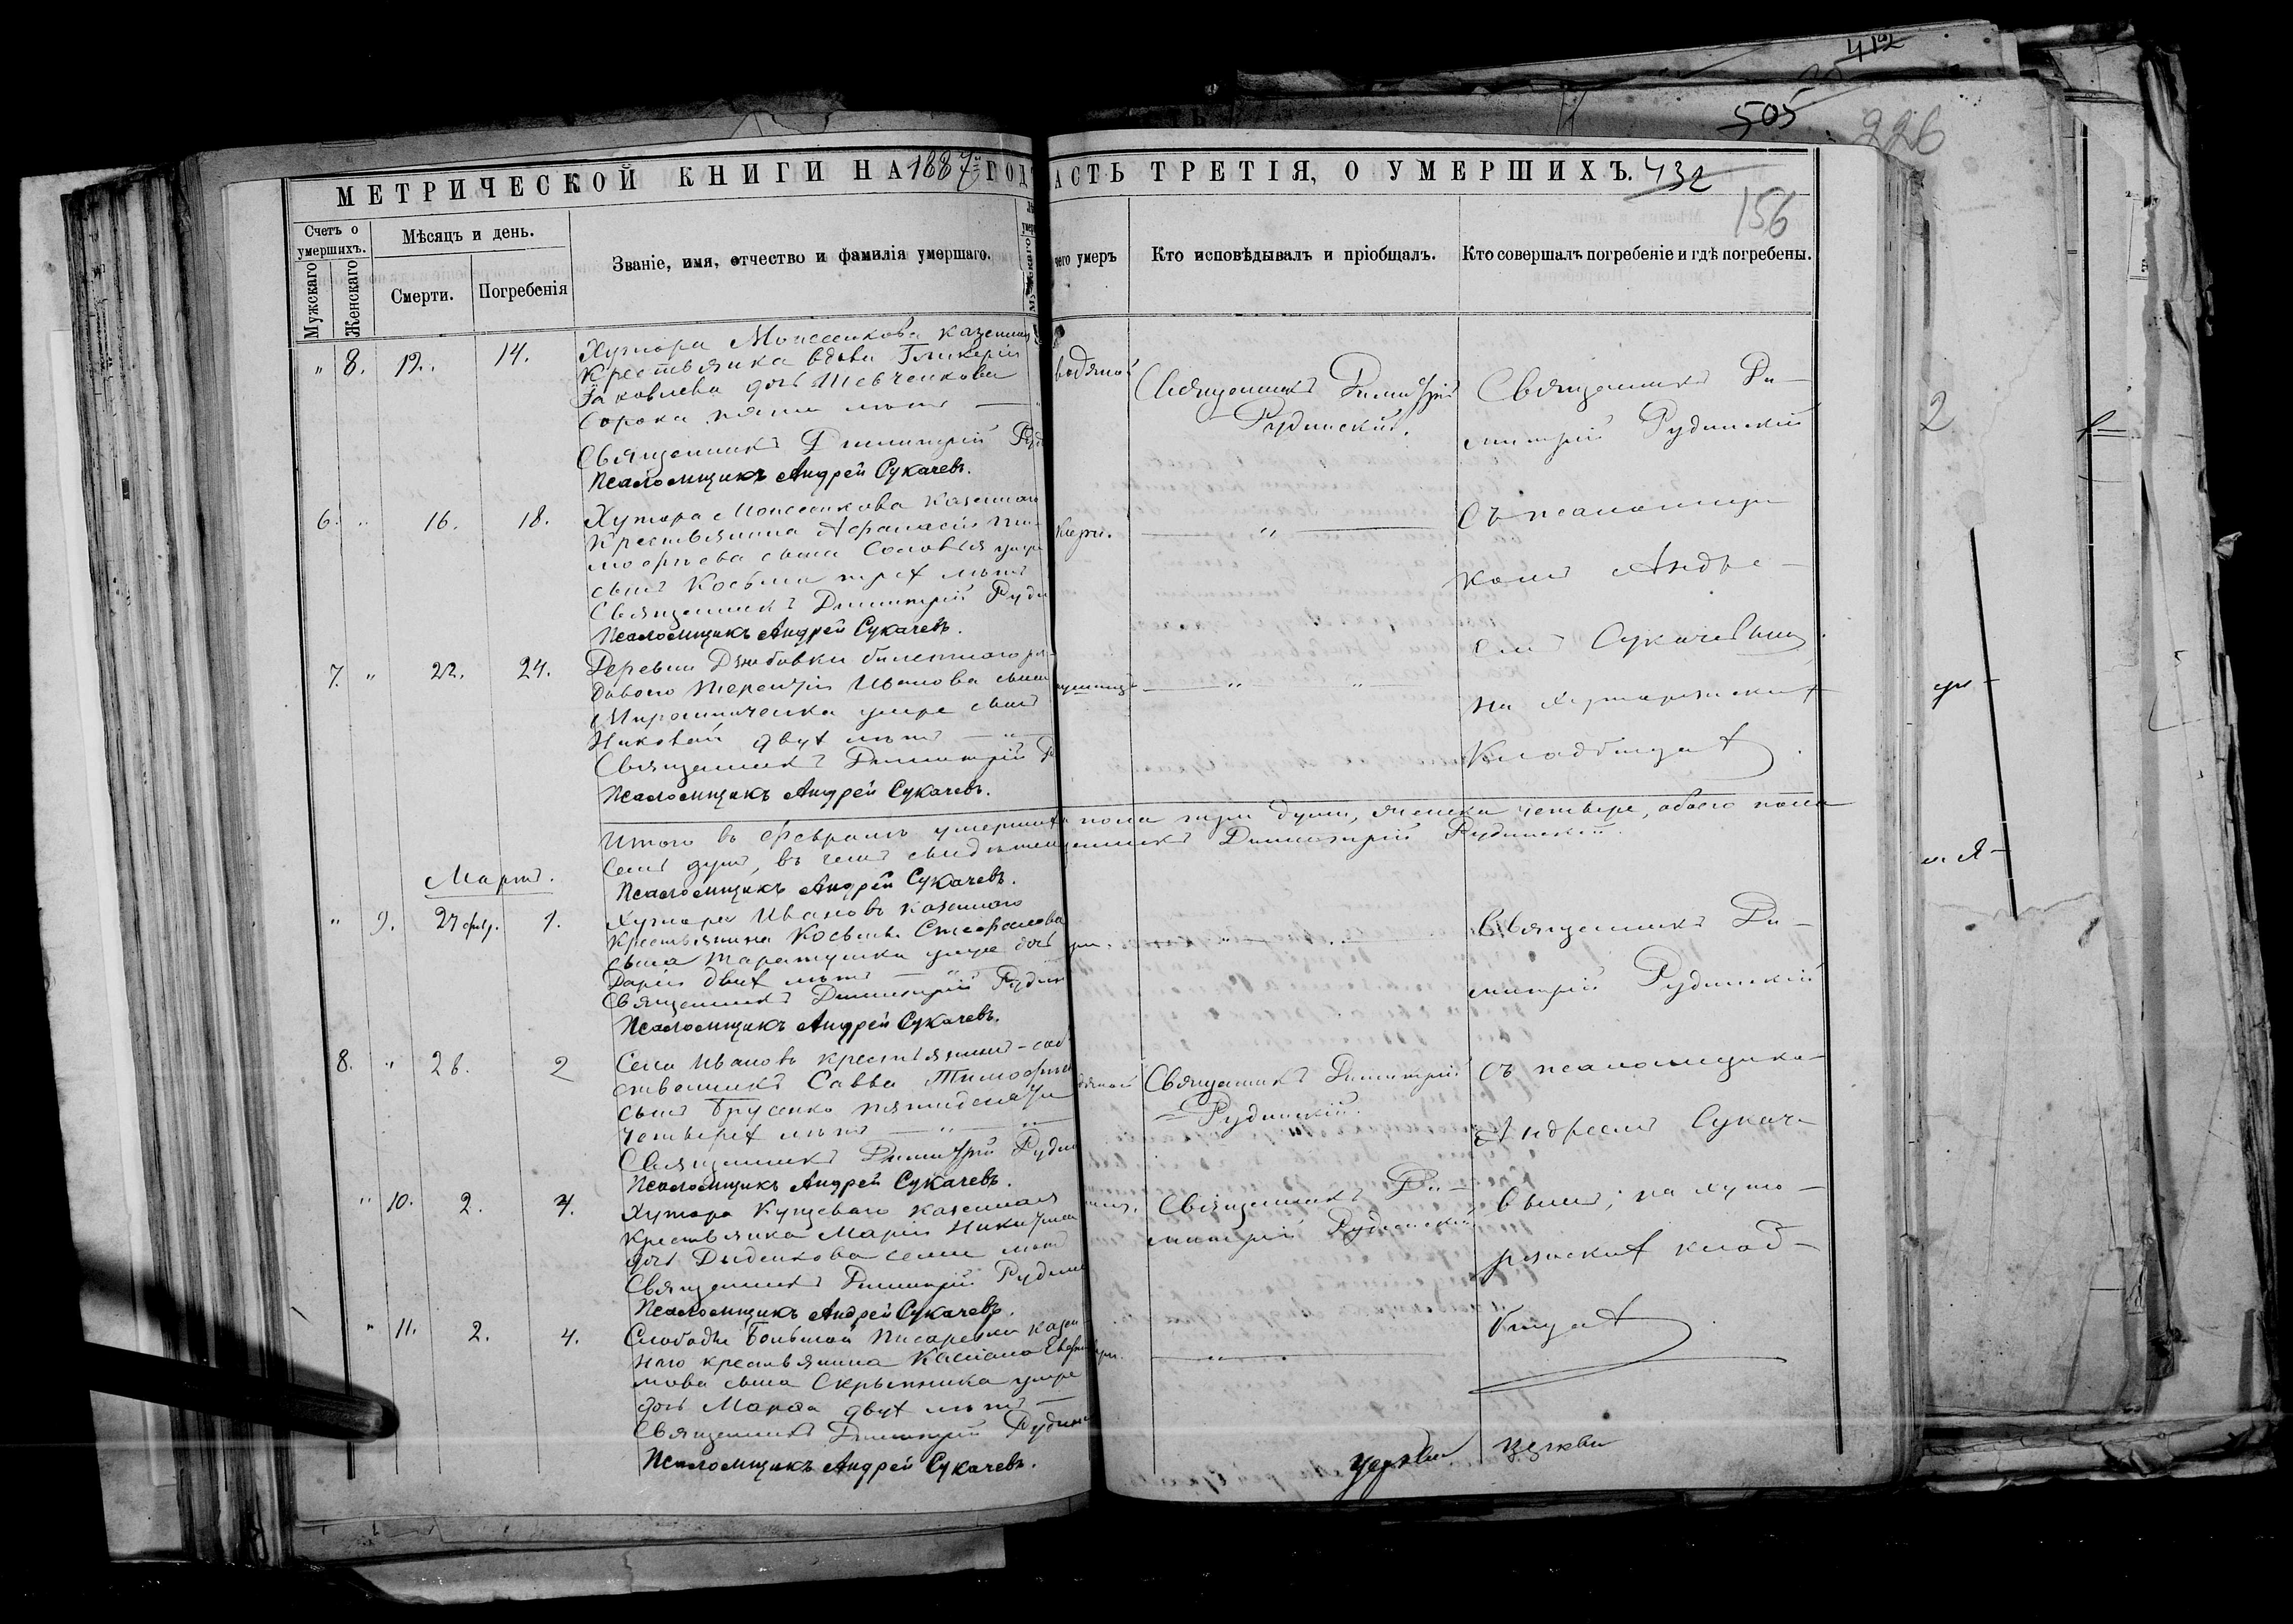 412
505
226
МЕТРИЧЕСКОЙ КНИГИ НА 1887й ГОДЪ
АСТЬ ТРЕТІЯ, О УМЕРШИХЪ. 432
156
Счетъ о умершихъ.
Мужскаго
Женскаго
Мѣсяцъ и день.
Смерти.
Погребенія
Званіе, имя, отчество и фамилія умершаго.
чего умеръ
Кто исповѣдывалъ и пріобщалъ.
Кто совершалъ погребеніе и гдѣ погребены.
" 8. 12. 14.
Хутора Моисеикова казенная
крестьянка вдова Гликерія
Іаковлева дочь Шевченкова
сорока пяти лѣтъ
Священникъ Димитрій Руд
Псаломщикъ Андрей Сукачевъ.
водяной
Священникъ Димитрій
Рудинскій.
Священникъ Ди-
митрій Рудинскій
6. " 16. 18.
Хутора Моисеикова казеннаго
крестьянина Аѳанасія Ти-
моѳеева сына Соловья умре
сынъ Косьма трех лѣтъ
Священникъ Димитрій Руди
Псаломщикъ Андрей Сукачевъ.
съ псаломщи
комъ Андре-
емъ Сукачевымъ,
7. " 22. 24.
Деревни Дзюбовки билетнаго ря-
доваго Терентія Иванова сына
Мирошниченка умре сынъ
Николай двух лѣтъ
Священникъ Димитрій Р
Псаломщикъ Андрей Сукачевъ.
на хуторянских
кладбищах
Итого въ Февралѣ умерших пола три души, женска четыре, обоего пола
семь душъ, въ чемъ свидѣтел Димитрій Рудинскій.
Псаломщикъ Андрей Сукачевъ.
Мартъ.
" 9. 27 февр. 1.
Хутора Ивановъ казеннаго
крестьянина Косьмы Стефанова
сына Таратушки умре дочь
Дарія двух лѣтъ
Священникъ Димитрій Рудин
Псаломщикъ Андрей Сукачевъ.
Священникъ Ди-
митрій Рудинскій
8. " 28. 2
Села Ивановъ крестьянинъ-соб
ственникъ Савва Тимоѳеев
сынъ Трусенко пятидесяти
четырех лѣтъ
Священникъ Димитрій Рудин
Псаломщикъ Андрей Сукачевъ.
Священникъ Димитрій
Рудинскій.
съ псаломщико-
Андреемъ Сукаче
" 10. 2. 4.
Хутора Куцеваго казенная
крестьянка Марія Никитина
дочь Диденкова семи лѣтъ
Священникъ Димитрій Рудин
Псаломщикъ Андрей Сукачевъ.
Священникъ Ди-
митрій Рудинскій
вымъ; на хуто-
рянских клад-
бищах
" 11. 2. 4.
Слободы Большой Писаревки казен
наго крестьянина Касіана Евфи
мова сына Скрыпника умре
дочь Марѳа двух лѣтъ
Священникъ Димитрій Рудин
Псаломщикъ Андрей Сукачевъ.
церкви
церкви